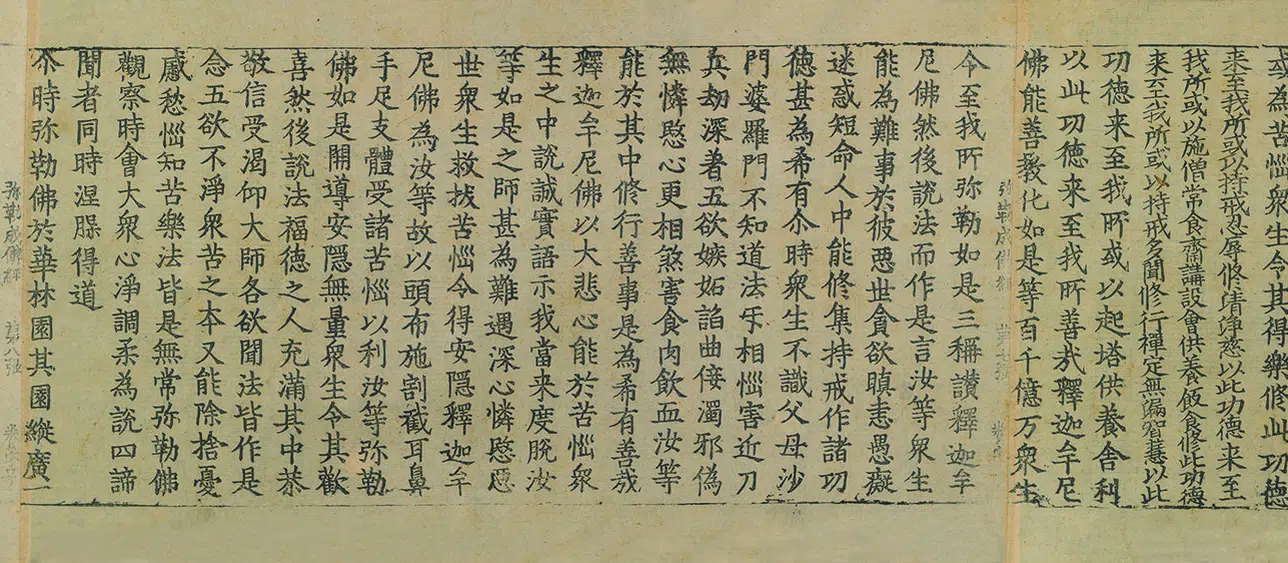 或為苦惱衆生令其得樂修此功德
来至我所或以持戒忍辱修清淨慈以此功德来至
我所或以施僧常食齋講設會供養飯食修此功德
来至我所或以持戒多聞修行禪定無漏智慧以此
功徳来至我所或以起塔供養舍利
以此功徳来至我所善哉釋迦牟尼
佛能善教化如是等百千億万衆生
弥勒成佛經 第七張
令至我所弥勒如是三稱讃釋迦牟
尼佛然後說法而作是言汝等衆生
能為難事於彼惡世貪欲瞋恚愚癡
迷惑短命人中能修集持戒作諸功
徳甚為希有尒時衆生不識父母沙
門婆羅門不知道法㸦相惱害近刀
兵劫深著五欲嫉妬諂曲佞濁邪偽
無憐愍心更相煞害食肉飲血汝等
能於其中修行善事是為希有善哉
釋迦牟尼佛以大悲心能於苦惱衆
生之中說誠實語示我當来度脫汝
等如是之師甚為難遇深心憐愍惡
世衆生救拔苦惱令得安隱釋迦牟
尼佛為汝等故以頭布施割截耳鼻
手足支體受諸苦惱以利汝等弥勒
佛如是開導安隱無量衆生令其歡
喜然後說法福徳之人充滿其中恭
敬信受渴仰大師各欲聞法皆作是
念五欲不淨衆苦之本又能除捨憂
慼愁惱知苦樂法皆是無常弥勒佛
觀察時會大衆心淨調柔為說四諦
聞者同時得涅槃道
尒時弥勒佛於華林園其園縱廣一
弥勒成佛經 第八張